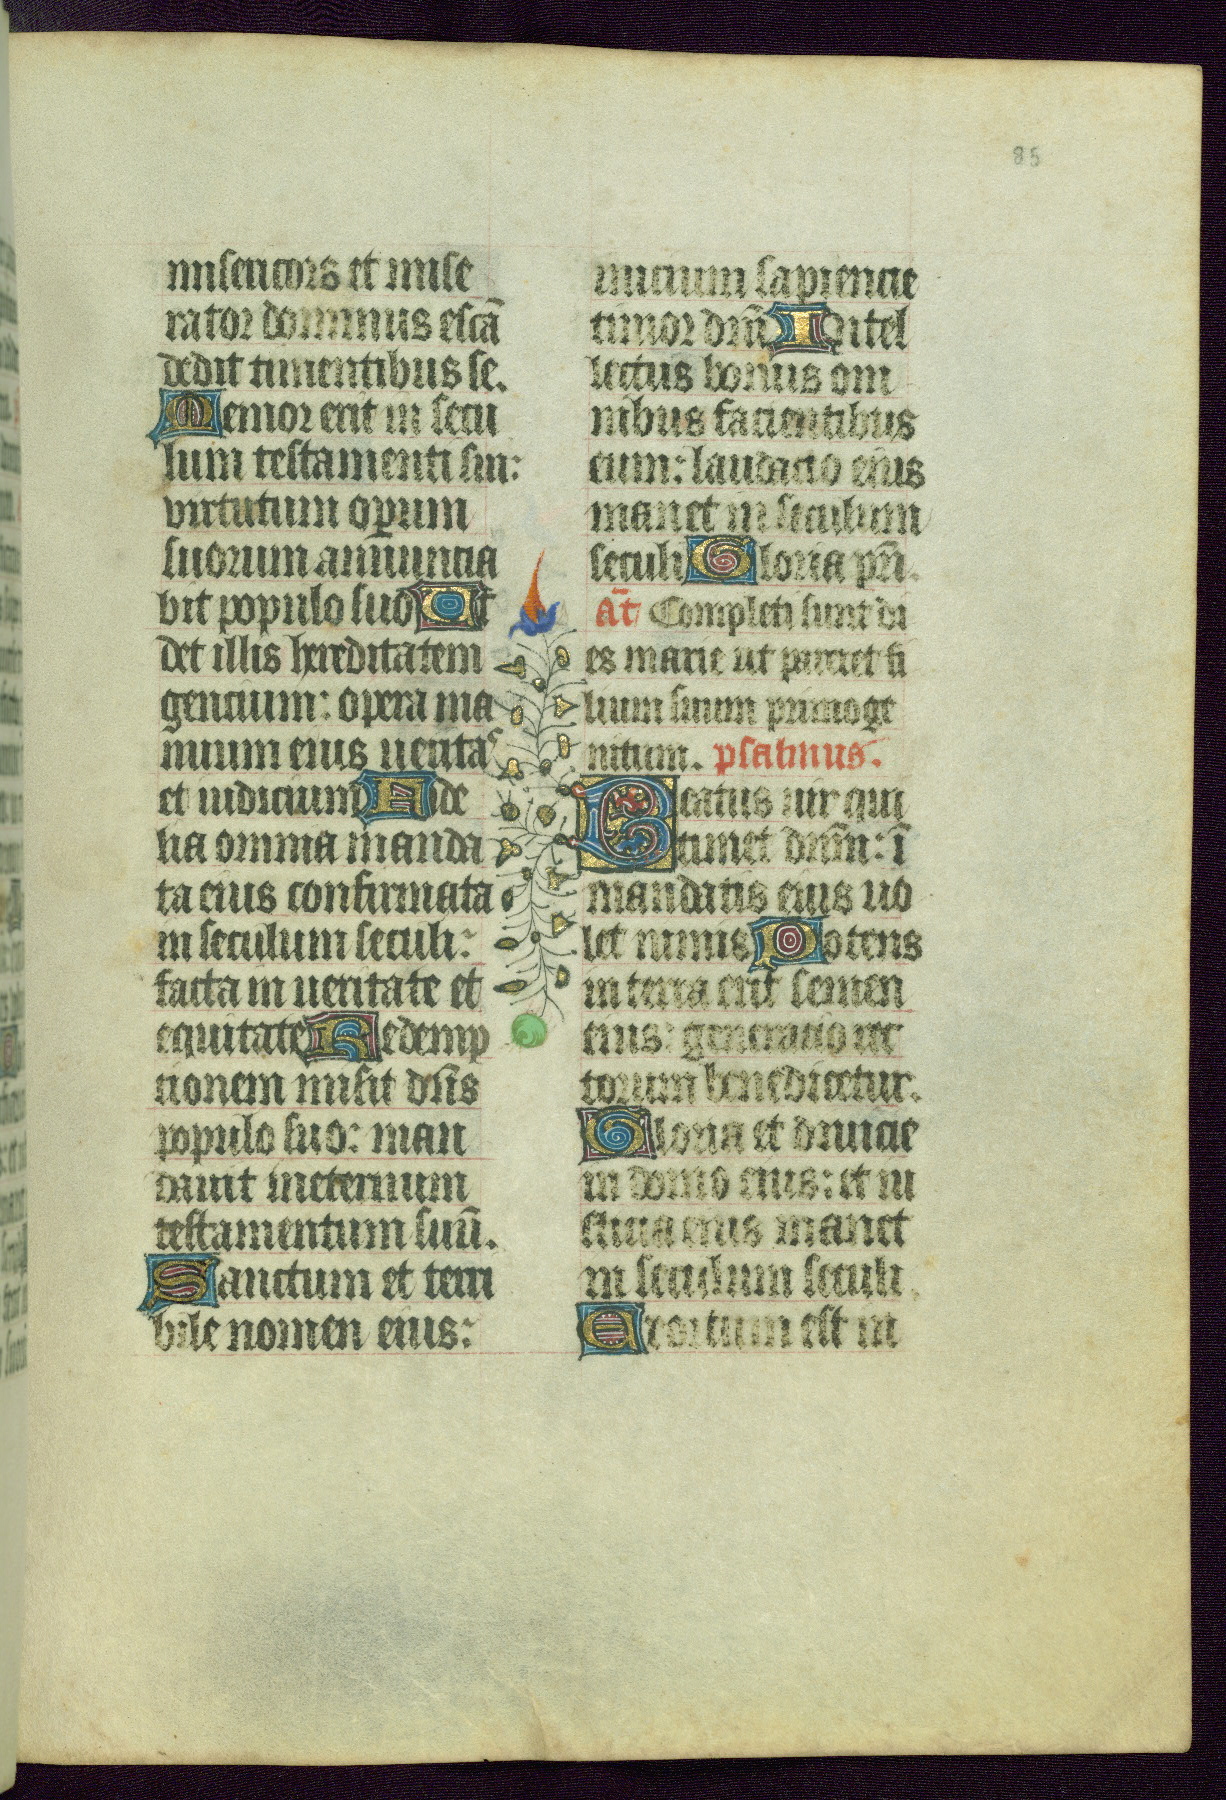 85
misericors et mise
rator dominus escā
dedit timentibus se.
Memor erit in secu
lum testamenti sui:
virtutum operum
suorum annuncia
bit populo suo Ut
det illis hereditatem
gencium: opera ma
nuum eius ueritas
et iudicium Fide
lia omnia manda
ta eius confirmata
in seculum seculi:
facta in ueritate et
equitate Redemp
tionem misit dn̄s
populo suo: man
dauit ineternum
testamentum suū.
Sanctum et terri
bile nomen eius:
inicium sapiencie
timor dn̄i Intel
lectus bonus om
nibus facientibus
eum: laudacio eius
manet in seculum
seculi Gloria pr̄i.
an̄t Completi sunt di
es marie ut pareret fi
lium suum primoge
nitum. psalmus.
Beatus uir qui
timet dn̄m: ī
mandatis eius uo
let nimis Potens
in terra erit semen
eius: generatio rec
torum benedicetur.
Gloria et diuicie
in domo eius: et iu
sticia eius manet
in seculum seculi
Exortum est in